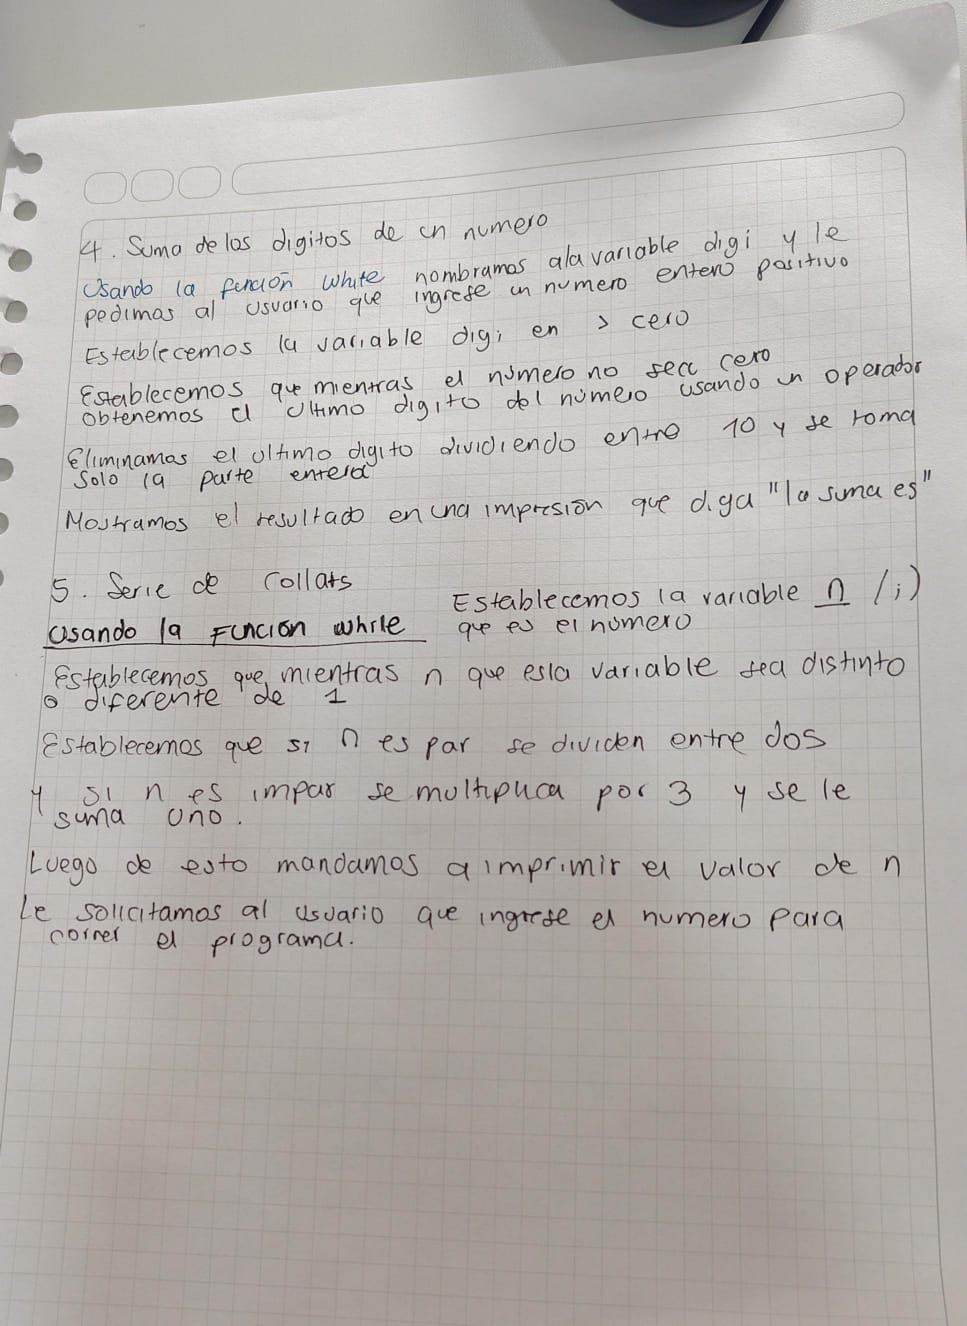 4. Suma de los digitos de un numero
Usando la función While nombramos ala variable digi y le
pedimos al usuario que ingrese un numero entero positivo
Establecemos la variable digi en > cero
Establecemos que mientras el número no sea cero
obtenemos el ultimo digito del número usando un operador
Eliminamos el ultimo digito dividiendo entre 10 y se toma
solo la parte entera
Mostramos el resultado en una impresión que diga "la suma es"
5. Serie de Collats
Establecemos la variable n (i)
Usando la Función while que es el numero
Establecemos que mientras n que esla variable sea distinto
o diferente de 1
Establecemos que si n es par se dividen entre dos
y si n es impar se multiplica por 3 y se le
suma uno.
Luego de esto mandamos a imprimir el valor de n
Le solicitamos al usuario que ingrese el numero para
correr el programa.